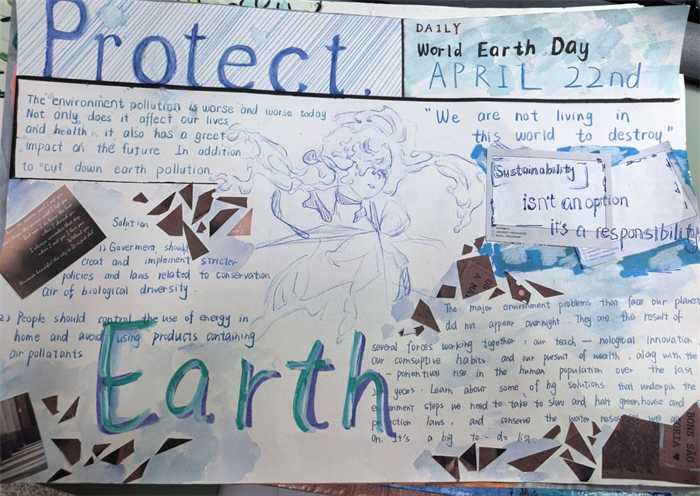 Protect.
DAILY
World Earth Day
APRIL 22nd
The environment pollution is worse and worse today
Not only does it affect our lives
and health, it also has a greet
impact on the future In addition
to cut down earth pollution
"We are not living in
this world to destroy"
Sustainability
isn't an option
it's a responsibility
Solution
1) Goverment should
creat and implement stricter
policies and laws related to conservation
air of biological driversity.
2) People should control the use of energy in
home and avoid using products containing
air pollatants
Earth
The major environment problems that face our planet
did not appear overnight. They are the result of
several forces working together: our teach - nological innovation
Our comsuptive habits. and our pursuit of wealth, along with the
- ponentival rise in the human population over the last
years. Learn about some of big solutions that underpin the
steps we need to take to slow and halt greenhouse and
laws, and conserve the water
on. It's a big to-do list.